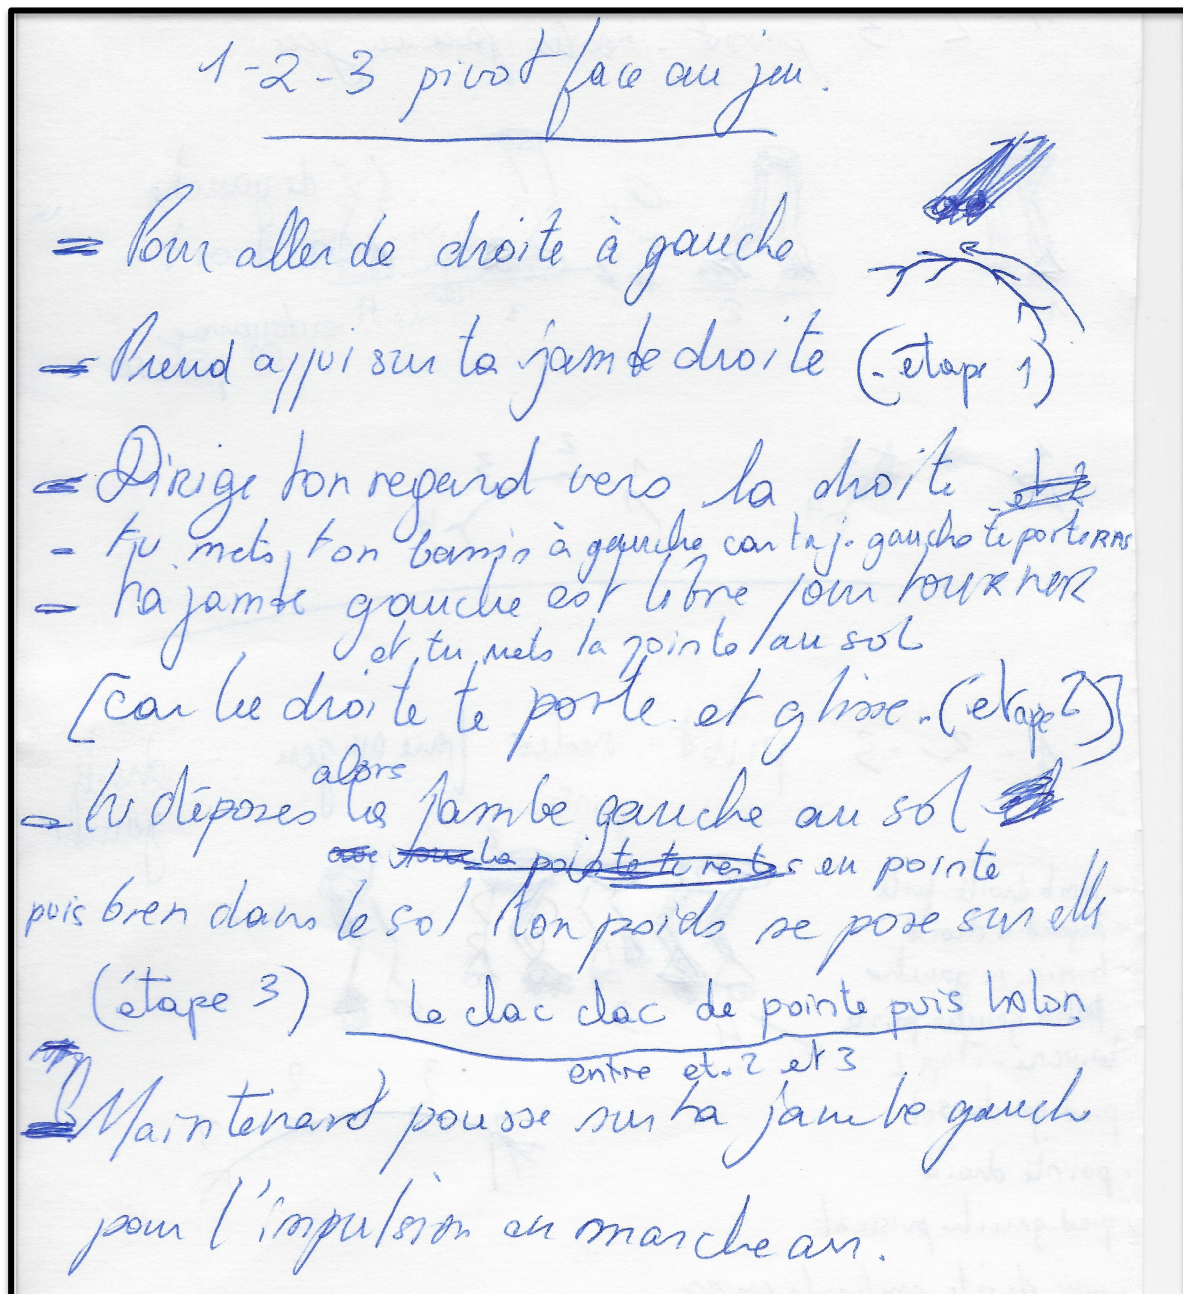 1-2-3 pivot face au jeu.
= Pour aller de droite à gauche
- Prend appui sur ta jambe droite (-étape 1)
- Dirige ton regard vers la droite
- tu mets ton bassin à gauche car ta j. gauche te porteRAS
- ta jambe gauche est libre pour tourner
et tu mets la pointe au sol
[car la droite te porte et glisse. (étape 2)]
- tu déposes alors la jambe gauche au sol
la pointe tu restes en pointe
puis bien dans le sol ton poids se pose sur elle
(étape 3) le clac clac de pointe puis talon
entre et. 2 et 3
- Maintenant pousse sur ta jambe gauch
pour l'impulsion en marche arr.